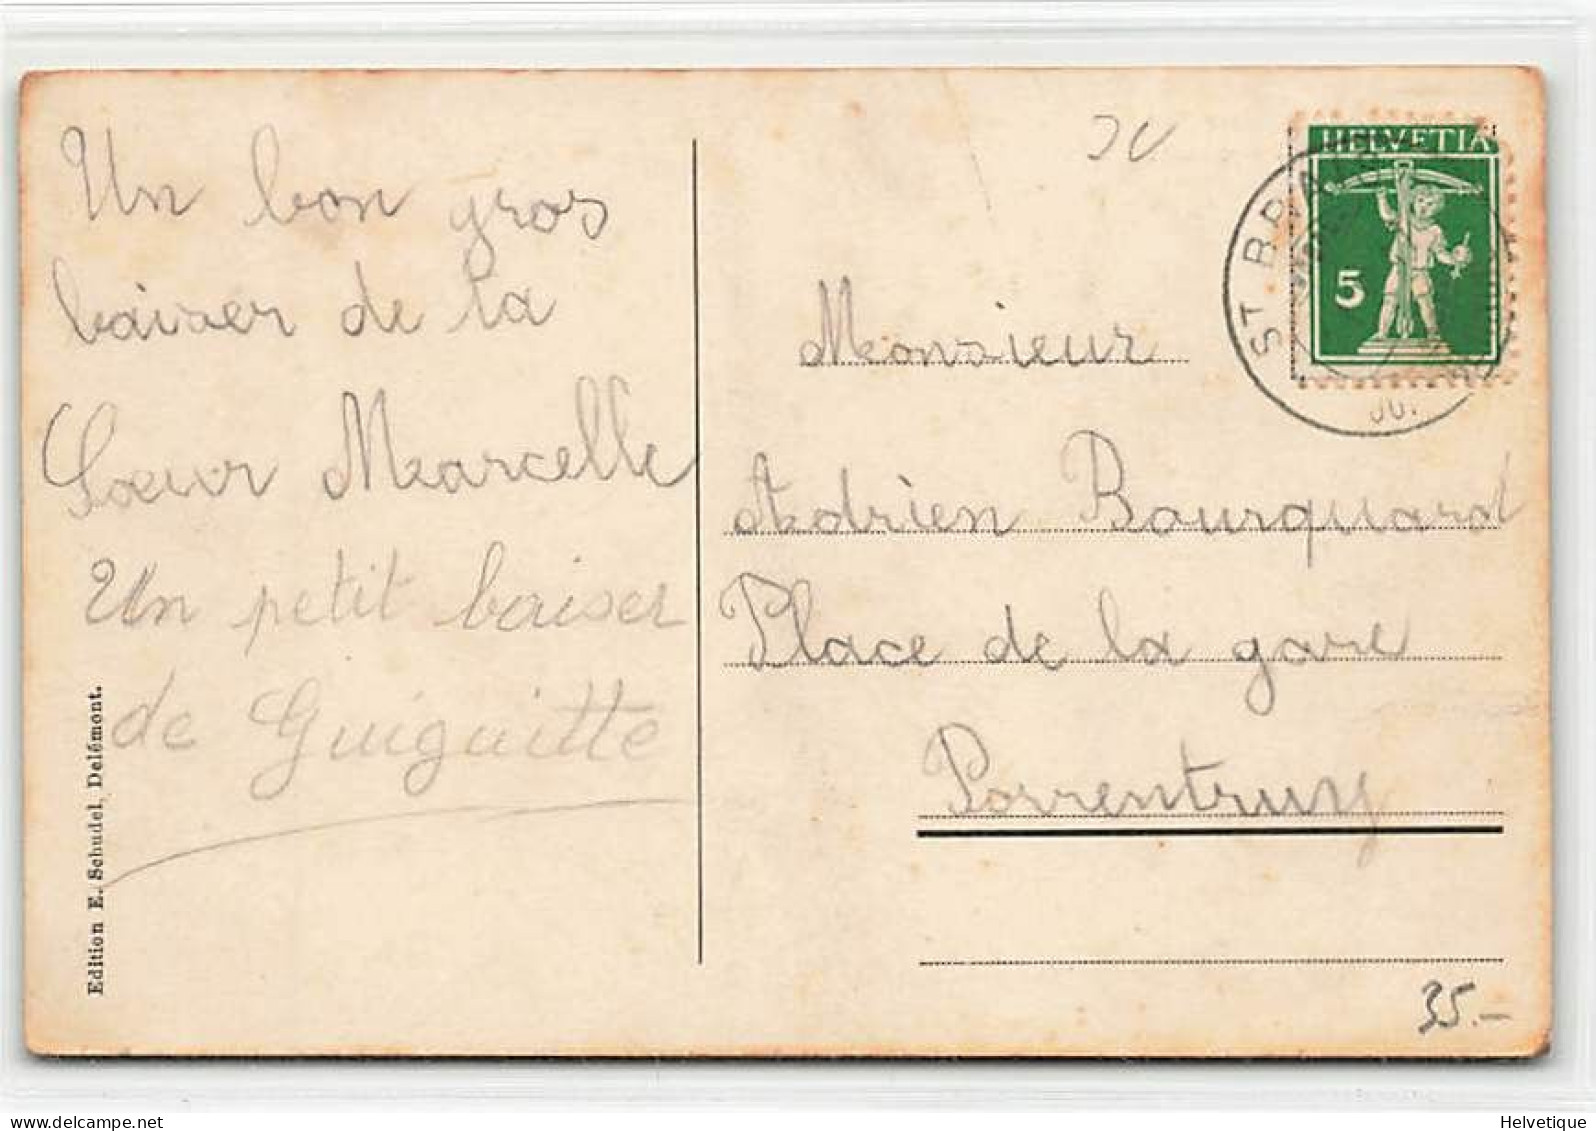 Un bon gros
baiser de la
Sœur Marcelle
Un petit baiser
de Guiguitte
Edition E. Schudel, Delémont.
HELVETIA
5
ST. BRAIS
Monsieur
Adrien Bourquard
Place de la gare
Porrentruy
35.-
Helvetique